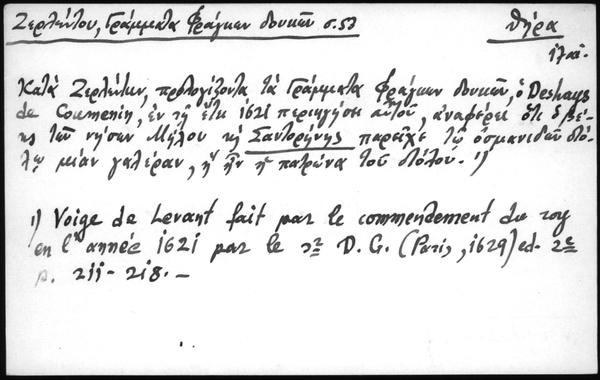 Ζερλέντου, Γράμματα Φράγκων δουκῶν σ. 53
Θήρα
17 αἰ.
Κατὰ Ζερλέντην, προλογίζοντα τὰ Γράμματα Φράγκων δουκῶν, ὁ Deshayes
de Courmenin, ἐν τῇ ἐν ἔτει 1621 περιηγήσει αὐτοῦ, ἀναφέρει ὅτι ὁ βέ-
ης τῶν νήσων Μήλου κὴ Σαντορήνης παρεῖχε τῷ ὀσμανιδῶν στό-
λῳ μίαν γαλέραν, ἥ ἦν ἡ πατρώνα τοῦ στόλου. 1)
1) Voige de Levant fait par le commendement du roy
en l'année 1621 par le Sr D. C. (Paris, 1629) ed. 2e
p. 211-218.—